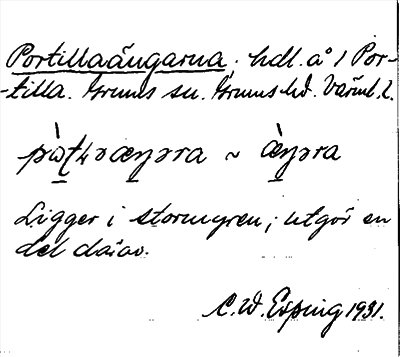 Portillaängarna. hdl. å 1 Por-
-tilla. Grums sn. Grums hd. Värml. l.
 æŋəra ~ æ̀ŋəra
Ligger i stormyren; utgör en
del därav.
C. W. Esping 1931.